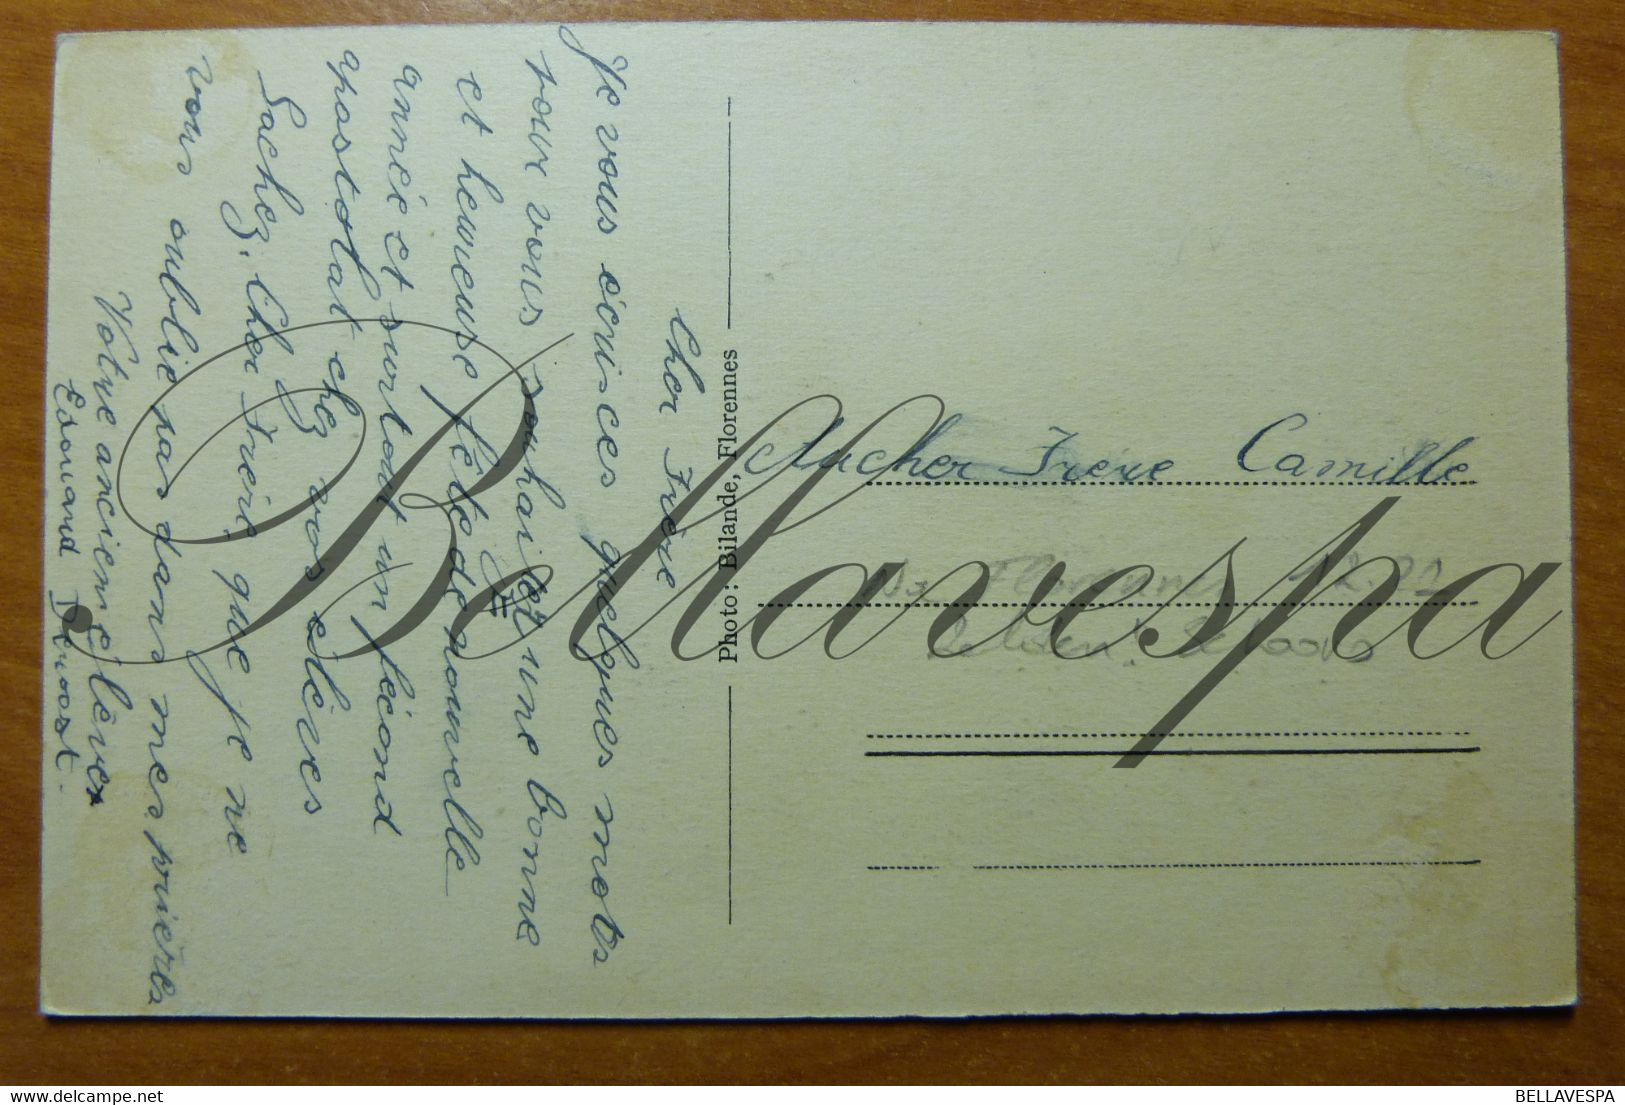 Cher Frère
Je vous écris ces quelques mots
pour vous souhaiter une bonne
et heureuse fête de nouvelle
année et surtout un fécond
apostolat chez vos élèves
Sachez, Cher Frère, que je ne
vous oublie pas dans mes prières
Votre ancien élève
Edouard
Photo: Bilande, Florennes
Aucher Frere Camille
Florennes 12.22
Bellavespa
BELLAVESPA